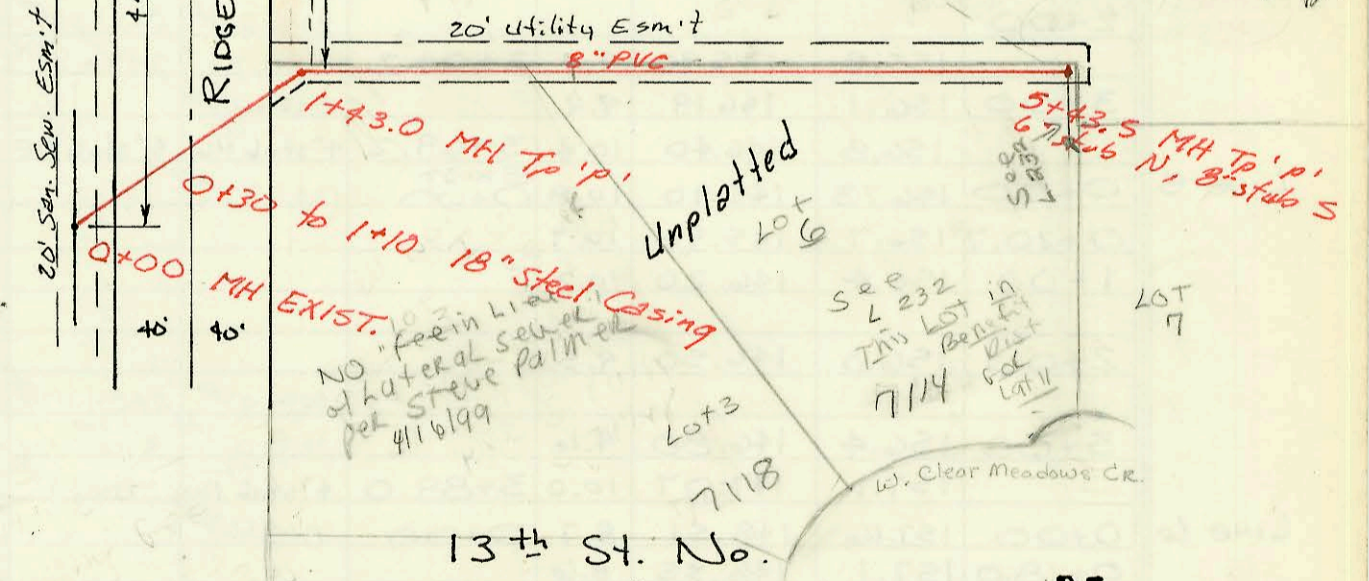 20' Utility Esm't
8" PVC
20' San. Sew. Esm't
RIDGE
1+43.0 MH Tp 'P'
5+43.5 MH Tp 'P'
6" stub N, 8" stub S
See
L 232
0+30 to 1+10 18" Steel Casing
0+00 MH EXIST.
Unplatted
LOT 6
See
L 232
This Lot in
Benefit
Dist
for
Lat 11
7114
LOT
7
NO "fee in Lieu"
of Lateral sewer
per Steve Palmer
4/16/99
Lot 3
7118
W. Clear Meadows CR.
13th St. No.